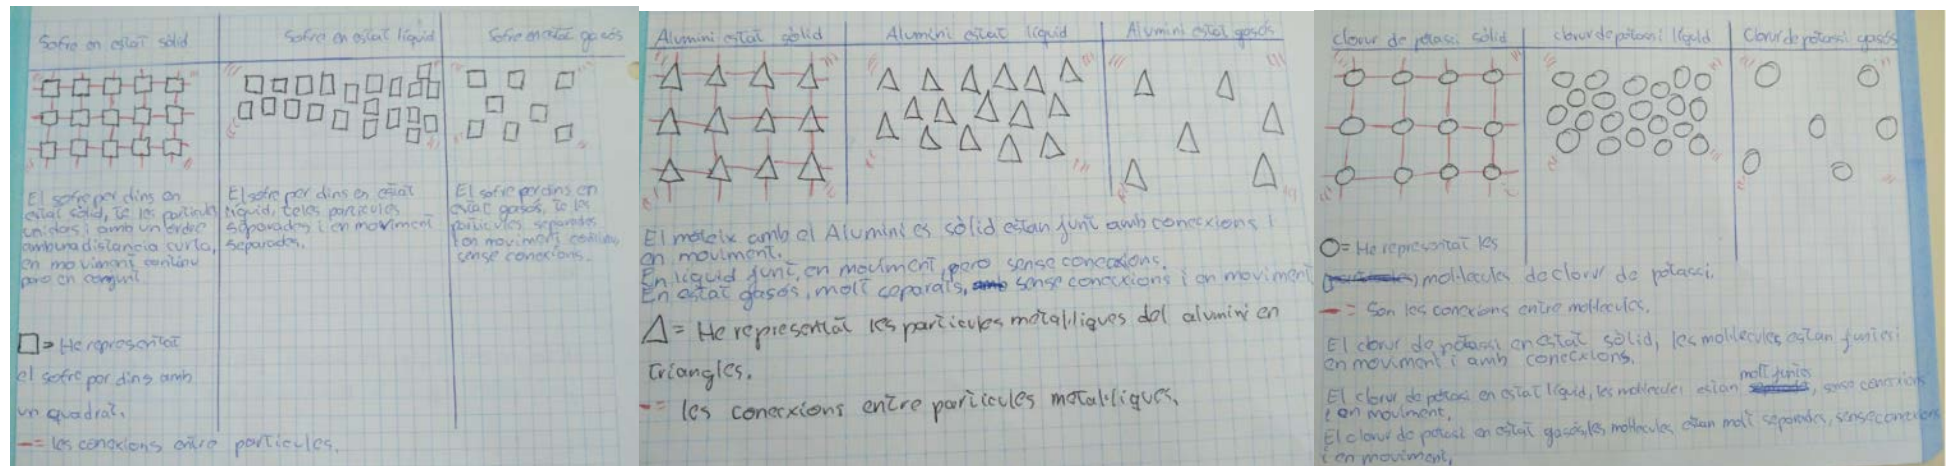 Sofre en estat sòlid
Sofre en estat líquid
Sofre en estat gasós
El sofre per dins en
estat sòlid, te les partícules
unides i amb un ordre
amb una distancia curta,
en moviment continu
pero en conjunt.
El sofre per dins en estat
líquid, te les partícules
separades i en moviment
separades.
El sofre per dins en
estat gasós, te les
partícules separades
i en moviment continu,
sense conexions.
□ = He representat
el sofre per dins amb
un quadrat.
— = les conexions entre partícules.
Alumini estat sòlid
Alumini estat líquid
Alumini estat gasós
El mateix amb el Alumini es sòlid estan junt amb conecxions i
en moviment.
En líquid junt, en moviment, pero sense conecxions.
En estat gasós, molt separats, sense conecxions i en moviment
△ = He representat les partícules metal·liques del alumini en
triangles.
— = les conecxions entre partícules metal·liques.
Clorur de potassi sòlid
Clorur de potassi líquid
Clorur de potassi gasós
O = He representat les
mol·lecules de clorur de potassi.
— = Son les conexions entre mol·lecules.
El clorur de potassi en estat sòlid, les mol·lecules estan juntes i
en moviment i amb conecxions.
El clorur de potassi en estat líquid, les mol·lecules estan molt juntes, sense conexions
i en moviment.
El clorur de potassi en estat gasós, les mol·lecules estan molt separades, sense conexions
i en moviment.